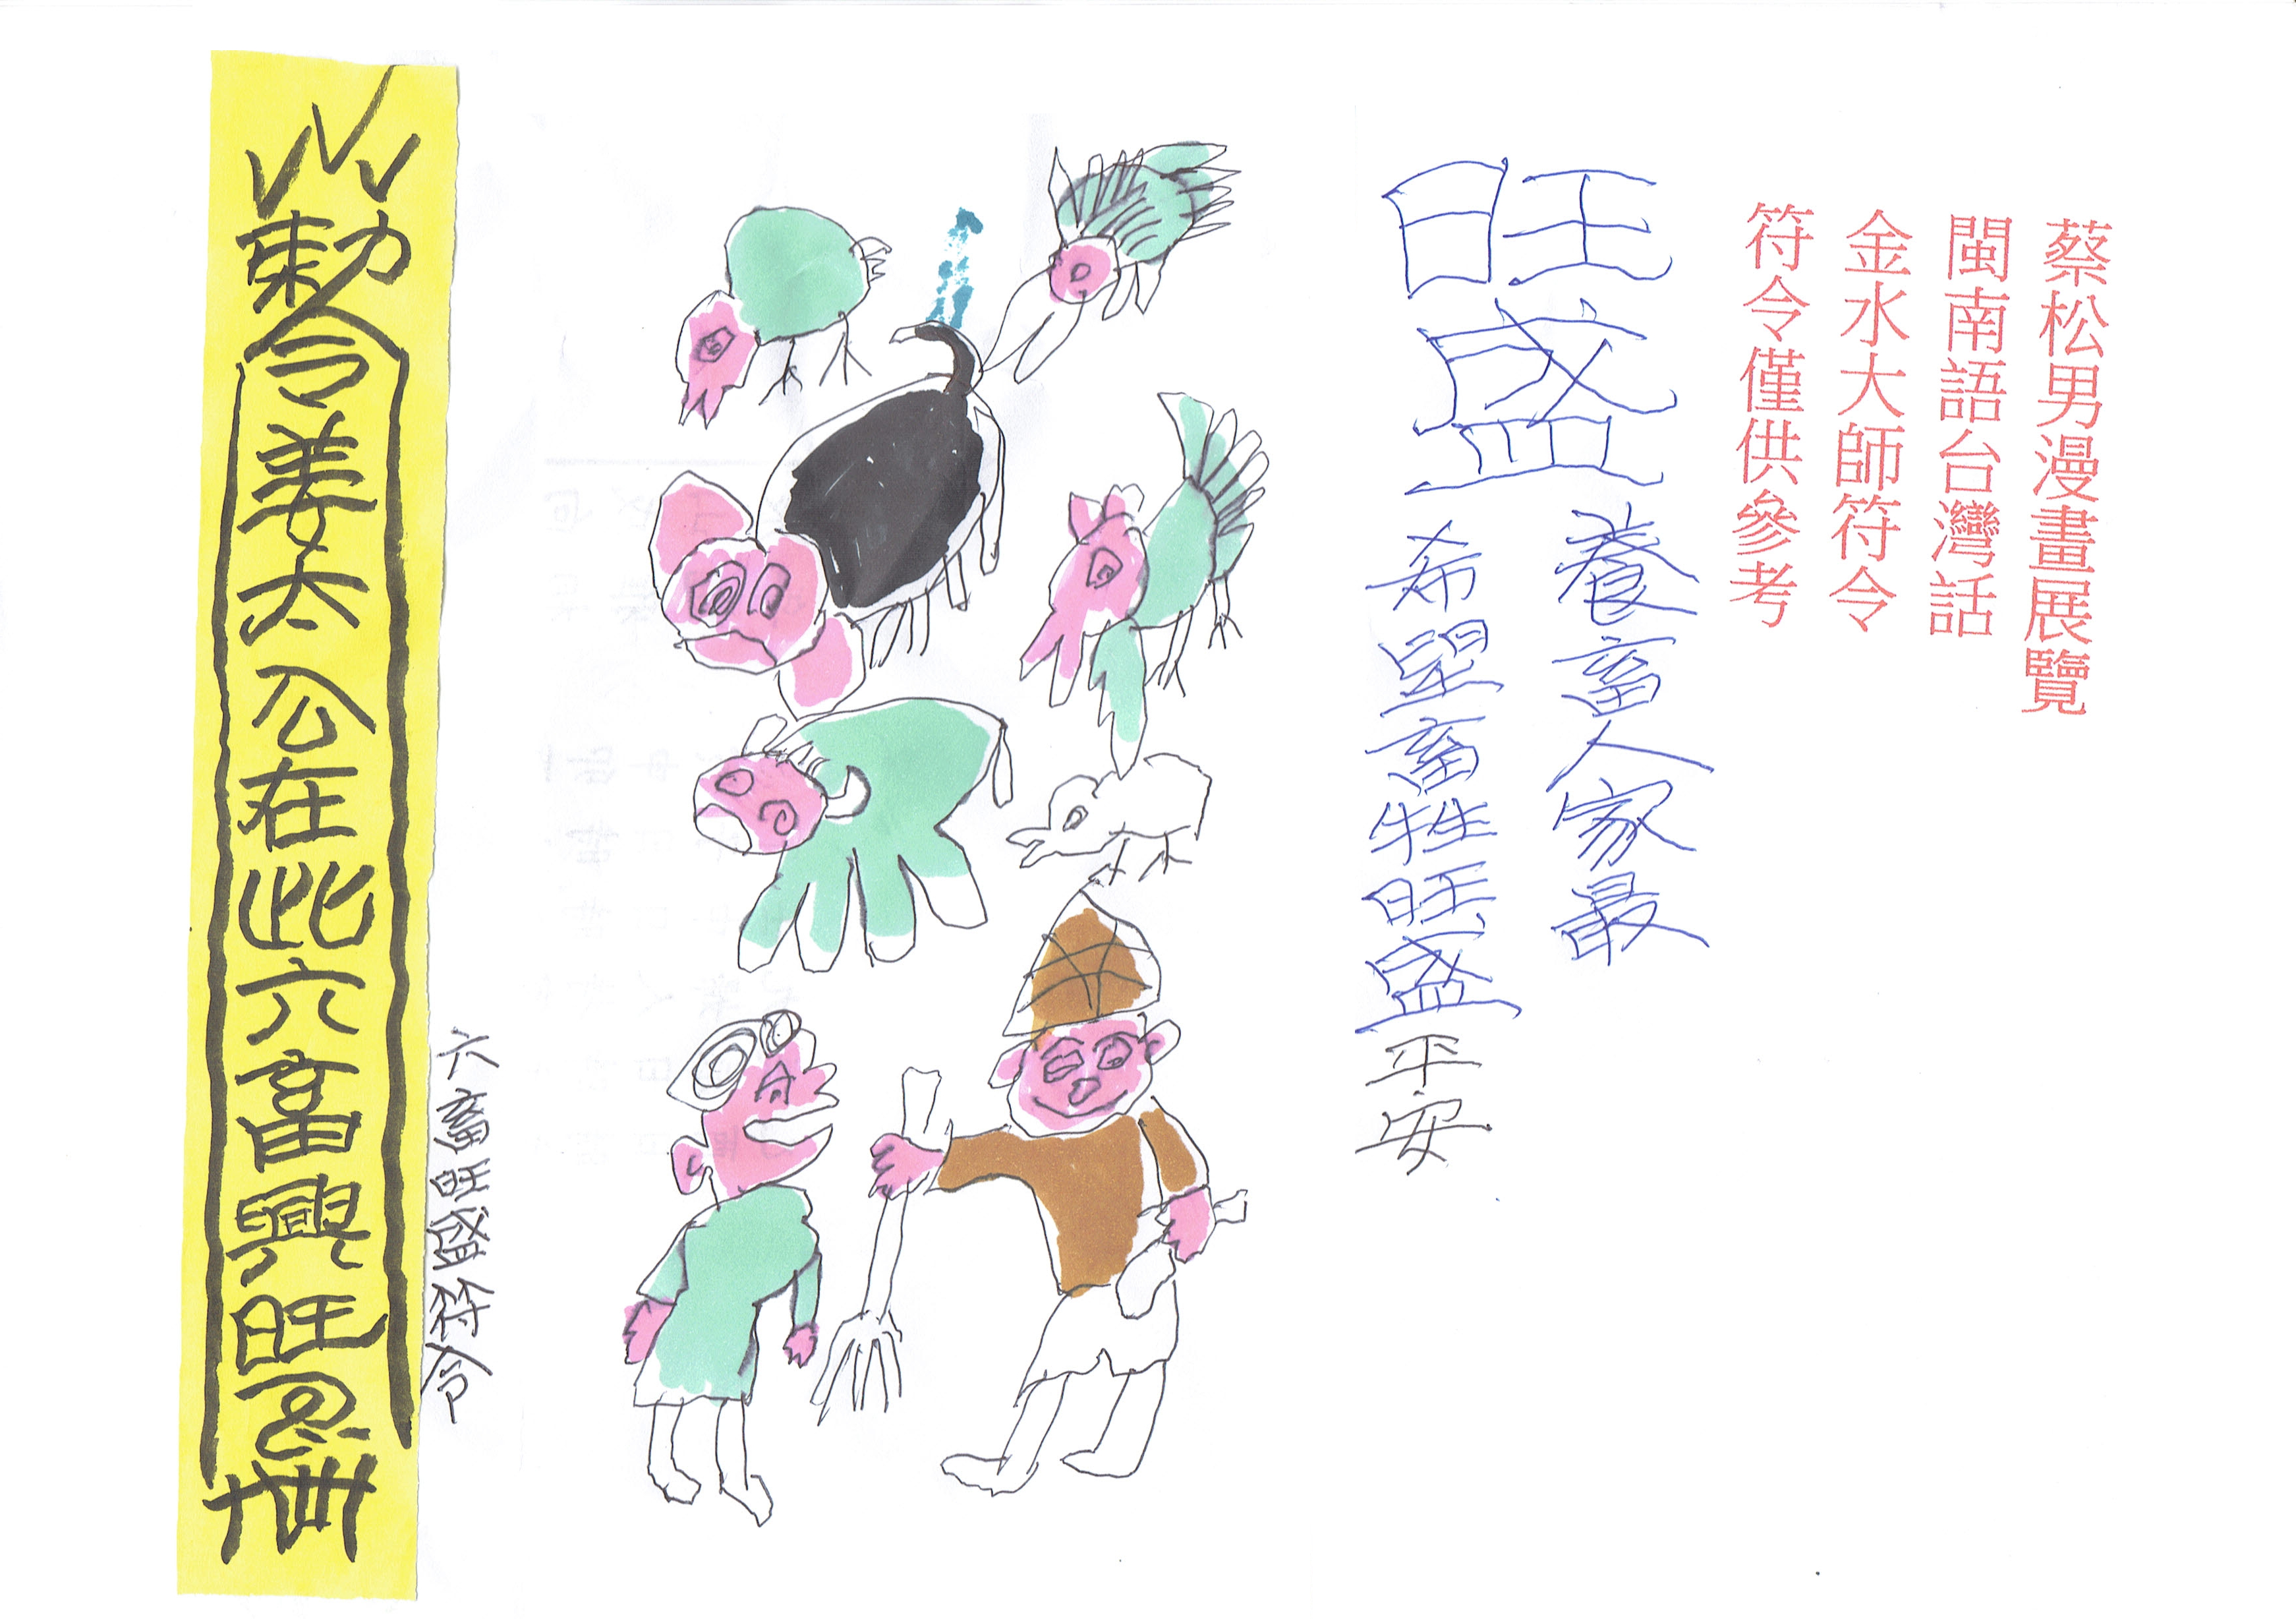 蔡松男漫畫展覽
閩南語台灣話
金水大師符令
符令僅供參考
旺盛
養畜人家最
希望畜牲旺盛平安
六畜旺盛符令
勅令姜太公在此六畜興旺